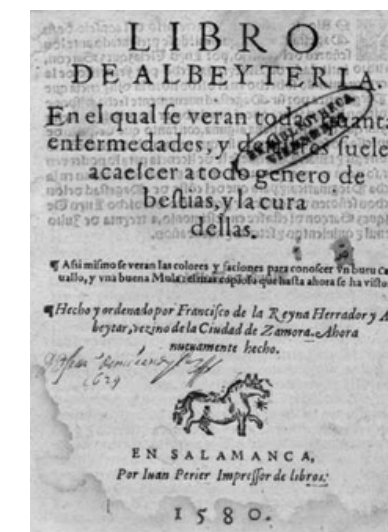 LIBRO
DE ALBEYTERIA.
En el qual se veran todas quanta
enfermedades, y desastres suele
acaescer a todo genero de
bestias, y la cura
dellas.
¶ Asi mismo se veran las colores y faciones para conoscer vn buen ca
uallo, y vna buena Mula: el mas copioso que hasta ahora se ha visto
¶ Hecho y ordenado por Francisco de la Reyna Herrador y A
beytar, vezino de la Ciudad de Zamora. Ahora
nueuamente hecho.
1629
EN SALAMANCA,
Por Iuan Perier Impressor de libros:
1580.